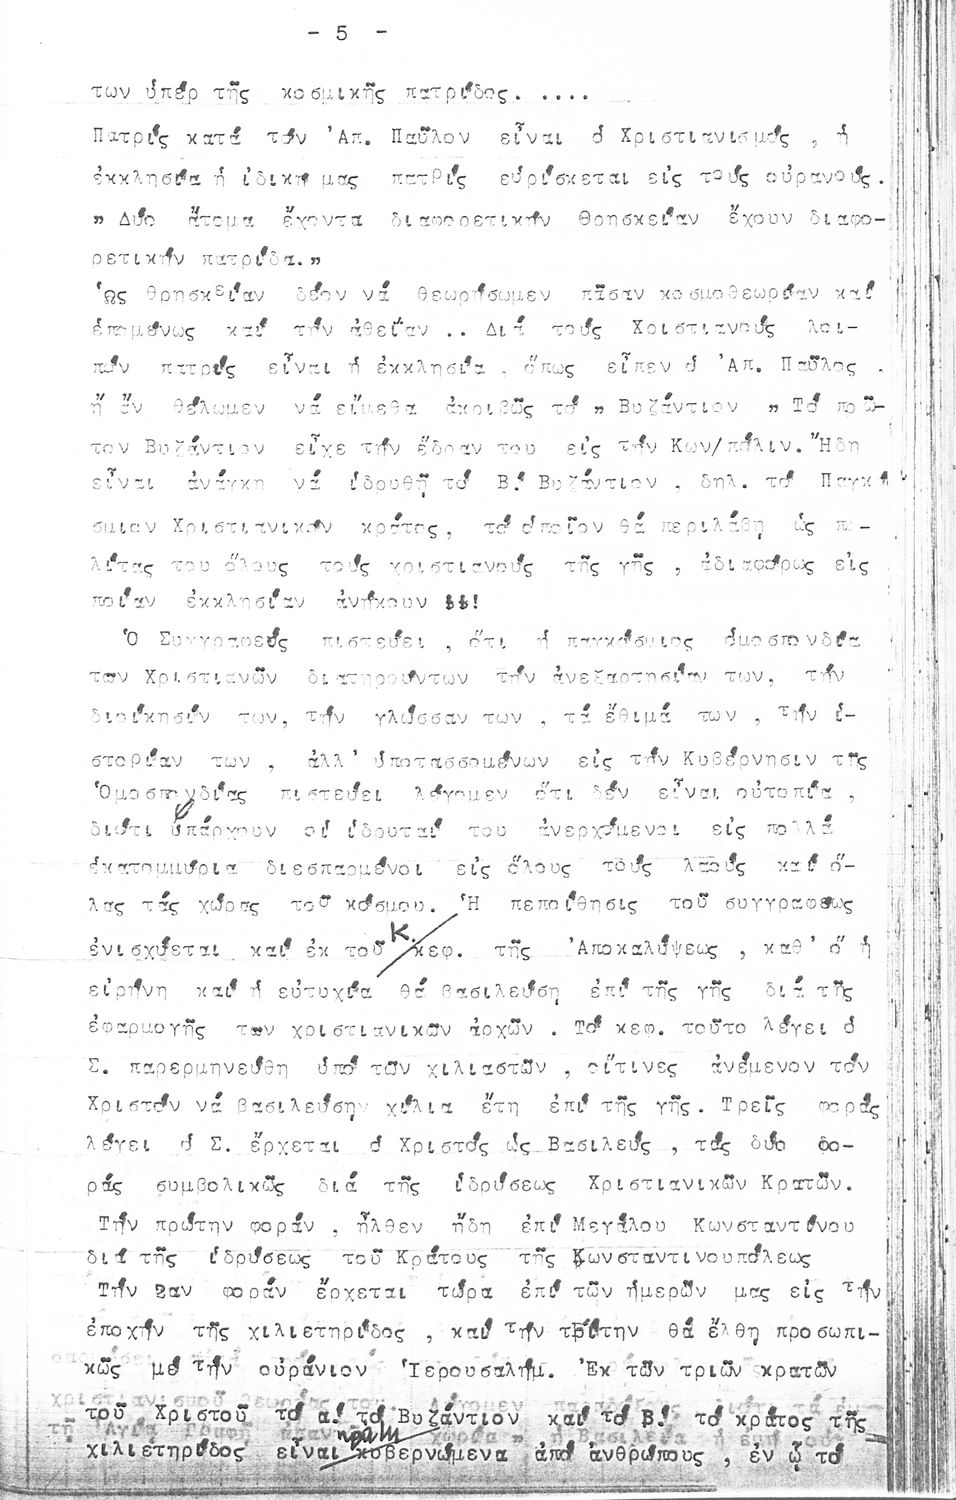 - 5 -
των ὑπέρ τῆς κοσμικῆς πατρίδος. ....
Πατρίς κατά τόν Ἀπ. Παῦλον εἶναι ὁ Χριστιανισμός , ἡ
ἐκκλησία ἡ ἰδική μας πατρίς εὑρίσκεται εἰς τούς οὐρανούς.
" Δύο ἄτομα ἔχοντα διαφορετικήν θρησκείαν ἔχουν διαφο-
ρετικήν πατρίδα."
Ὡς θρησκείαν δέον νά θεωρήσωμεν πᾶσαν κοσμοθεωρίαν καί
ἑπομένως καί τήν ἀθεΐαν .. Διά τούς Χριστιανούς λοι-
πόν πατρίς εἶναι ἡ ἐκκλησία , ὅπως εἶπεν ὁ Ἀπ. Παῦλος .
ἤ ἄν θέλωμεν νά εἴμεθα ἀκριβῶς τό " Βυζάντιον " Τό πρῶ-
τον Βυζάντιον εἶχε τήν ἕδραν του εἰς τήν Κων/πόλιν. Ἤδη
εἶναι ἀνάγκη νά ἱδρυθῇ τό Β! Βυζάντιον , δηλ. τό Παγκό
σμιον Χριστιανικόν κράτος, τό ὁποῖον θά περιλάβη ὡς πο-
λίτας του ὅλους τούς χριστιανούς τῆς γῆς , ἀδιαφόρως εἰς
ποίαν ἐκκλησίαν ἀνήκουν !!!
Ὁ Συγγραφεύς πιστεύει , ὅτι ἡ παγκόσμιος ὁμοσπονδία
τῶν Χριστιανῶν διατηρούντων τήν ἀνεξαρτησίαν των, τήν
διοίκησίν των, τήν γλῶσσαν των , τά ἔθιμά των , τήν ἱ-
στορίαν των , ἀλλ' ὑποτασσομένων εἰς τήν Κυβέρνησιν τῆς
Ὁμοσπονδίας πιστεύει λέγομεν ὅτι δέν εἶναι οὐτοπία ,
διότι ὑπάρχουν οἱ ἱδρυταί του ἀνερχόμενοι εἰς πολλά
ἑκατομμύρια διεσπαρμένοι εἰς ὅλους τούς λαούς καί ὅ-
λας τάς χώρας τοῦ κόσμου. Ἡ πεποίθησις τοῦ συγγραφέως
ἐνισχύεται καί ἐκ τοῦ Κ. κεφ. τῆς Ἀποκαλύψεως , καθ' ὅ ἡ
εἰρήνη καί ἡ εὐτυχία θά βασιλεύση ἐπί τῆς γῆς διά τῆς
ἐφαρμογῆς τῶν χριστιανικῶν ἀρχῶν . Τό κεφ. τοῦτο λέγει ὁ
Σ. παρερμηνεύθη ὑπό τῶν χιλιαστῶν , οἵτινες ἀνέμενον τόν
Χριστόν νά βασιλεύση χίλια ἔτη ἐπί τῆς γῆς. Τρεῖς φοράς
λέγει ὁ Σ. ἔρχεται ὁ Χριστός ὡς Βασιλεύς , τάς δύο φο-
ράς συμβολικῶς διά τῆς ἱδρύσεως Χριστιανικῶν Κρατῶν.
Τήν πρώτην φοράν , ἦλθεν ἤδη ἐπί Μεγάλου Κωνσταντίνου
διά τῆς ἱδρύσεως τοῦ Κράτους τῆς Κωνσταντινουπόλεως
Τήν 2αν φοράν ἔρχεται τώρα ἐπί τῶν ἡμερῶν μας εἰς τήν
ἐποχήν τῆς χιλιετηρίδος , καί τήν τρίτην θά ἔλθη προσωπι-
κῶς μέ τήν οὐράνιον Ἱερουσαλήμ. Ἐκ τῶν τριῶν κρατῶν
τοῦ Χριστοῦ τό α! τό Βυζάντιον καί τό Β! τό κράτος τῆς
χιλιετηρίδος εἶναι κυβερνώμενα ἀπό ἀνθρώπους , ἐν ᾧ τό